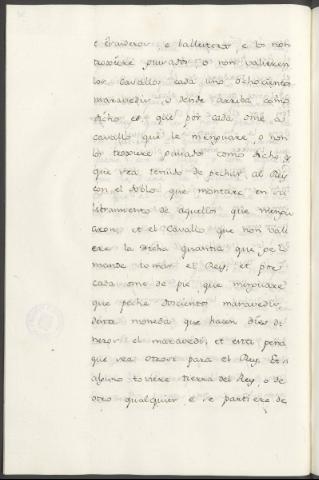 e Graderos, e ballesteros, e lo non
troxiere puiados, o non valieren
los Cavallos cada uno ochocientos
maravedis, o dende arriba, como
dicho es, que por cada ome al
cavallo que le menguare, o non
lo troxiere paiado como dicho es
que sea tenido de pechar al Rey
con el doblo que montare en su
libramiento de aquellos que mengu
aron, et el Cavallo que non vali
ere la dicha quantia que se lo
mande tomar el Rey, et por
cada ome de pie, que menguare
que peche docientos maravedis,
desta moneda que hacen dies di
neros el maravedi, et esta pena
que sea otrosi para el Rey. Et si
alguno toviere tierra del Rey, o de
otro qualquier e se partiere de